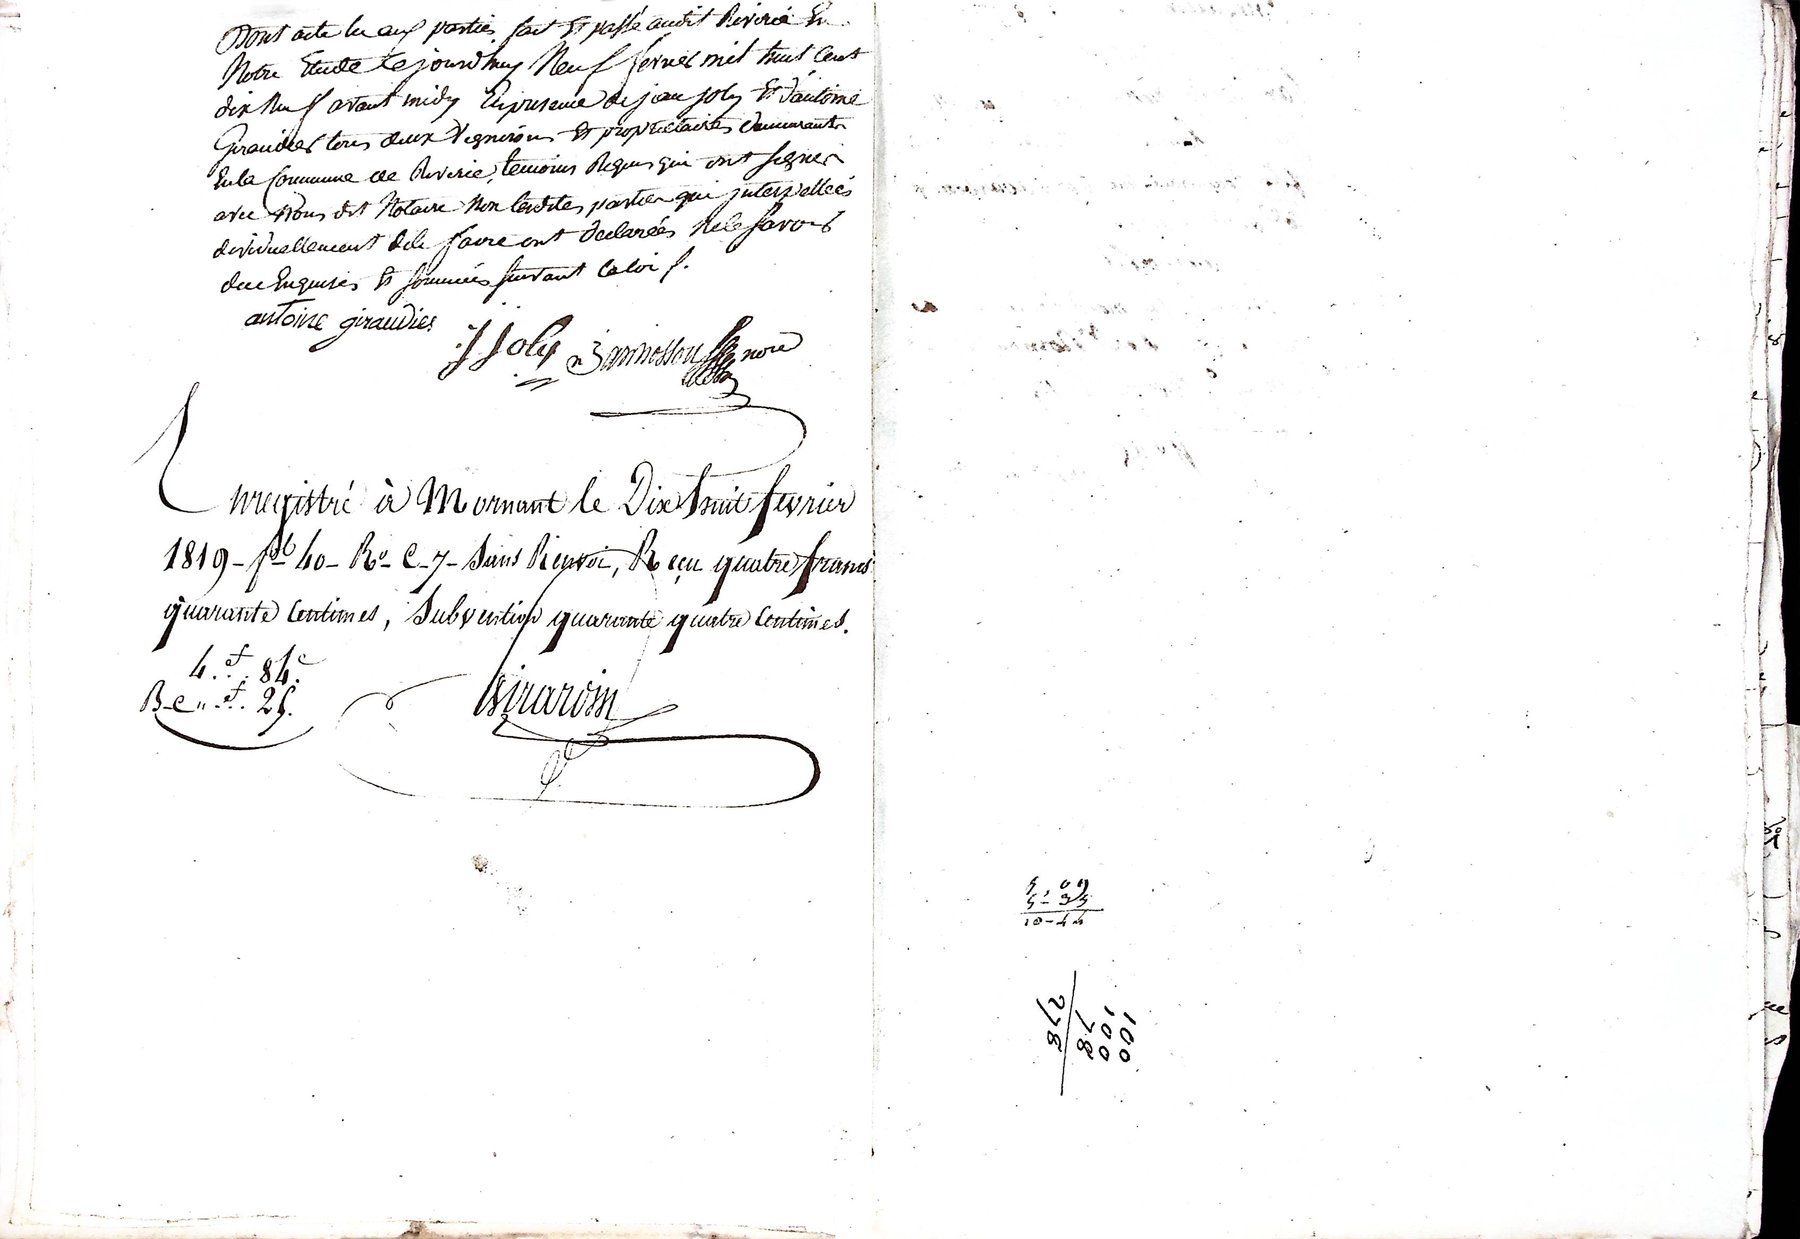 Dont acte lu aux parties fait Et passé audit Riverie En
Notre Etude Le jourd'huy Neuf février mil huit Cent
dix Neuf avant midy En presence de jean joly Et d'antoine
Giraudier tous deux Vignerons Et proprietaires demeurants
En la Commune de Riverie, temoins Requis qui ont signer
avec Nous dit Notaire Non lesdites parties qui interpellées
dividuellement de le faire ont declarées Ne le savoir
de ce Enquises Et sommées suivant la loi
antoine giraudier
J Joly nore
Enregistré à Mornant le Dix huit fevrier
1819 - fol 40 - Ro C - 7 - Sans Renvoi, Reçu quatre francs
quarante Centimes, Subvention quarante quatre Centimes.
4 f 84 c
B-C " f 25
Girardin
5, 09
5 - 35
10 - 44
100
100
78
278